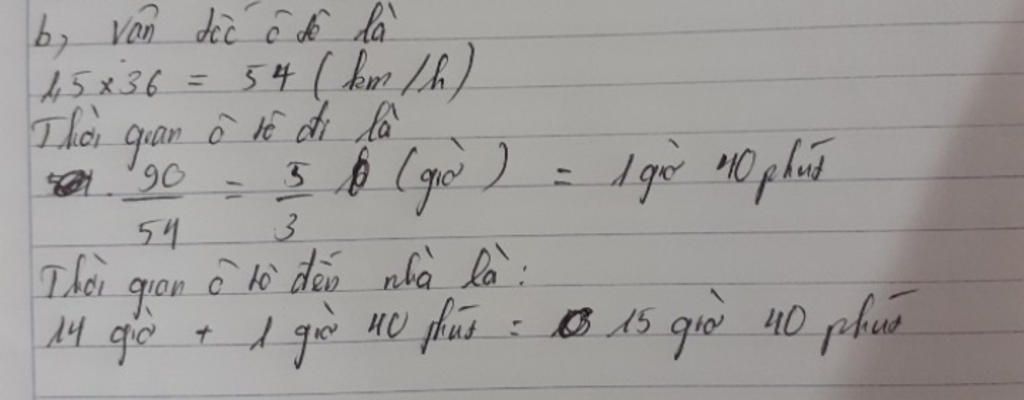 b, Vận tốc ô tô là
1,5 × 36 = 54 (km/h)
Thời gian ô tô đi là
90/54 = 5/3 (giờ) = 1 giờ 40 phút
Thời gian ô tô đến nhà là:
14 giờ + 1 giờ 40 phút = 15 giờ 40 phút